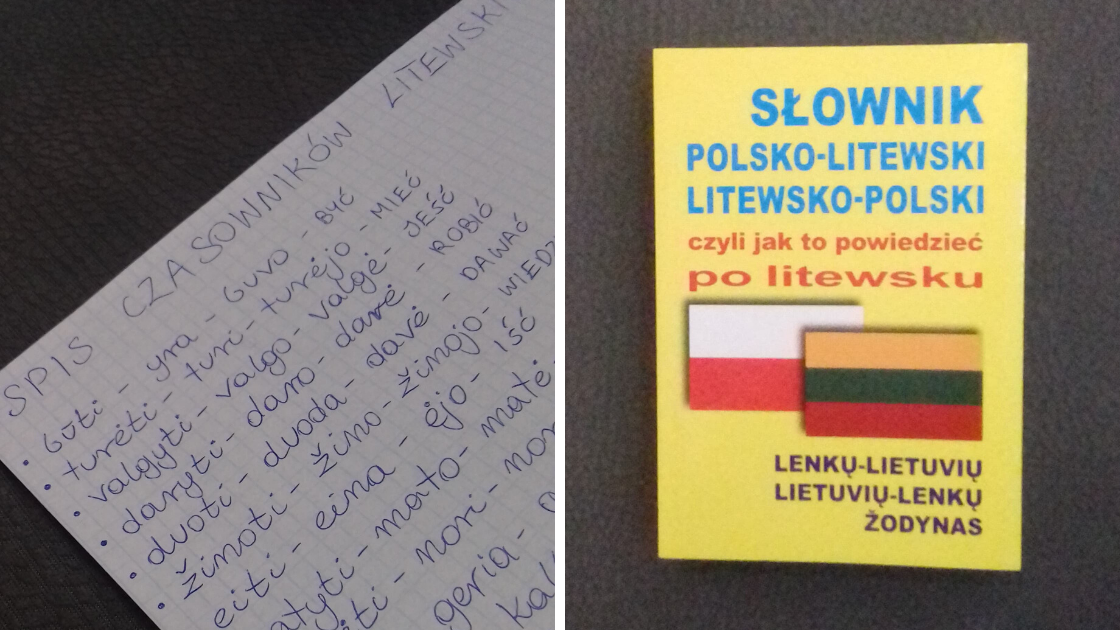 SPIS CZASOWNIKÓW LITEWSKI
• būti - yra - buvo - BYĆ
• turėti - turi - turėjo - MIEĆ
• valgyti - valgo - valgė - JEŚĆ
• daryti - daro - darė - ROBIĆ
• duoti - duoda - davė - DAWAĆ
• žinoti - žino - žinojo - WIEDZ
eiti - eina - ėjo - IŚĆ
atyti - mato - matė
ti - nori - nor
geria -
kal
SŁOWNIK
POLSKO-LITEWSKI
LITEWSKO-POLSKI
czyli jak to powiedzieć
po litewsku
LENKŲ-LIETUVIŲ
LIETUVIŲ-LENKŲ
ŽODYNAS